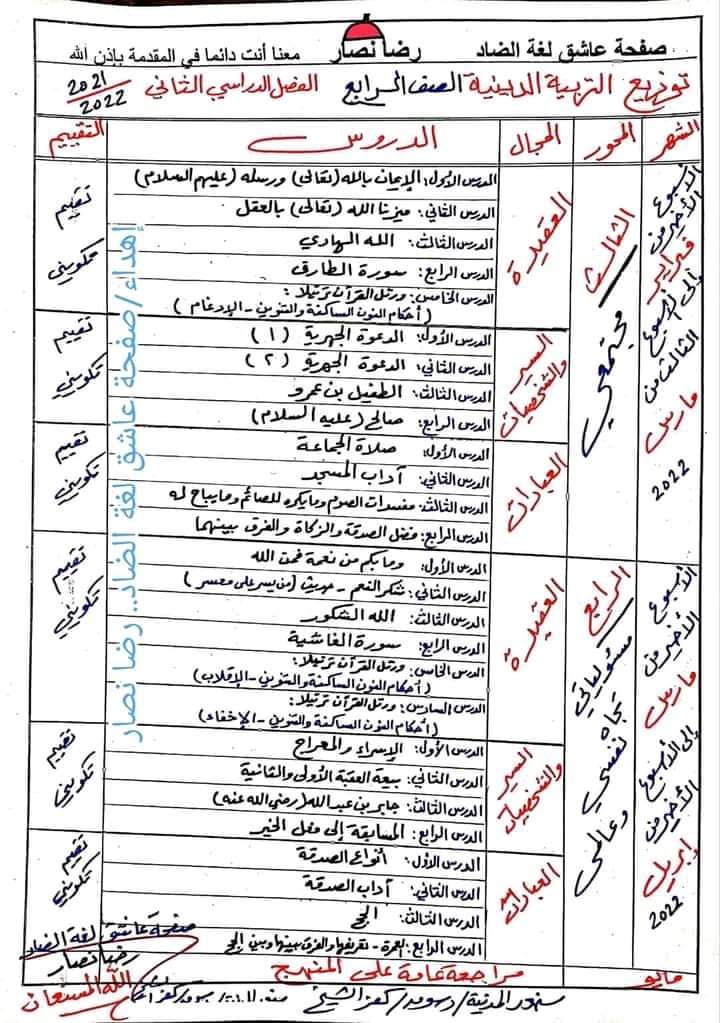 صفحة عاشق لغة الضاد رضا نصار معنا أنت دائما في المقدمة بإذن الله
توزيع التربية الدينية الصف الرابع الفصل الدراسي الثاني 2021/2022
الشهر المحور المجال الدروس التقييم
الأسبوع الأخير من فبراير إلى الأسبوع الثالث من مارس 2022
الثالث
مجتمعي
العقيدة
الدرس الأول: الإيمان بالله (تعالى) ورسله (عليهم السلام)
الدرس الثاني: ميزنا الله (تعالى) بالعقل
الدرس الثالث: الله الهادي
الدرس الرابع: سورة الطارق
الدرس الخامس: ورتل القرآن ترتيلا:
(أحكام النون الساكنة والتنوين - الإدغام)
تقييم تكويني
السير والشخصيات
الدرس الأول: الدعوة الجهرية (١)
الدرس الثاني: الدعوة الجهرية (٢)
الدرس الثالث: الطفيل بن عمرو
الدرس الرابع: صالح (عليه السلام)
تقييم تكويني
العبادات
الدرس الأول: صلاة الجماعة
الدرس الثاني: آداب المسجد
الدرس الثالث: مفسدات الصوم ومايكره للصائم ومايباح له
الدرس الرابع: فضل الصدقة والزكاة والفرق بينهما
تقييم تكويني
الأسبوع الأخير من مارس إلى الأسبوع الأخير من إبريل 2022
الرابع
مسئولياتي تجاه نفسي وعالمي
العقيدة
الدرس الأول: ومابكم من نعمة فمن الله
الدرس الثاني: شكر النعم - حديث (من يسر على معسر)
الدرس الثالث: الله الشكور
الدرس الرابع: سورة الغاشية
الدرس الخامس: ورتل القرآن ترتيلا:
(أحكام النون الساكنة والتنوين - الإقلاب)
الدرس السادس: ورتل القرآن ترتيلا:
(أحكام النون الساكنة والتنوين - الإخفاء)
تقييم تكويني
السير والشخصيات
الدرس الأول: الإسراء والمعراج
الدرس الثاني: بيعة العقبة الأولى والثانية
الدرس الثالث: جابر بن عبد الله (رضي الله عنه)
الدرس الرابع: المسابقة إلى فعل الخير
تقييم تكويني
العبادات
الدرس الأول: أنواع الصدقة
الدرس الثاني: آداب الصدقة
الدرس الثالث: الحج
الدرس الرابع: العمرة - تعريفها والفرق بينها وبين الحج
تقييم تكويني
مايو مراجعة عامة على المنهج
صفحة عاشق لغة الضاد
رضا نصار
الله المستعان
سنهور المدينة / دسوق / كفر الشيخ
إهداء/صفحة عاشق لغة الضاد.. رضا نصار